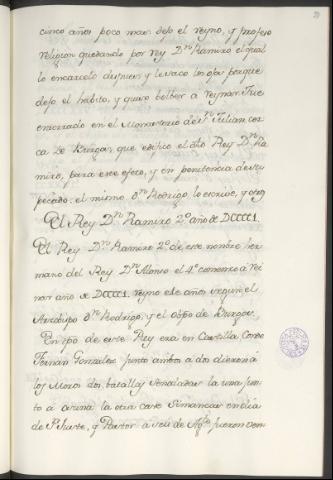 cinco años poco mas dejo el reyno, y profeso
religion quedando por rey D.n Ramiro el qual
lo encarcelo despues y le saco los ojos porque
dejo el habito, y quiso bolber á reynar. Fue
encerrado en el Monasterio de S.n Julian, cer
ca de Burgos, que edifico el dho Rey D.n Ra
miro, para este efeto, y en penitencia de su
pecado: el mismo d.n Rodrigo, lo escrive, y otros
El Rey D.n Ramiro 2.º año de DCCCC1.
El Rey D.n Ramiro 2.º de este nombre her
mano del Rey D.n Alonso el 4.º comenzo á rei
nar año de DCCCC1. reyno años segun el
Arzobispo d.n Rodrigo, y el obispo de Burgos.
En tpo de este Rey era en Castilla Conde
Fernan Gonzalez junto ambos á dos dieron á
los Moros dos batallas señaladas la una jun
to á la otra cave Simancas en dia
de S. Juste, y Pastor á seis de Ag.to fueron ven